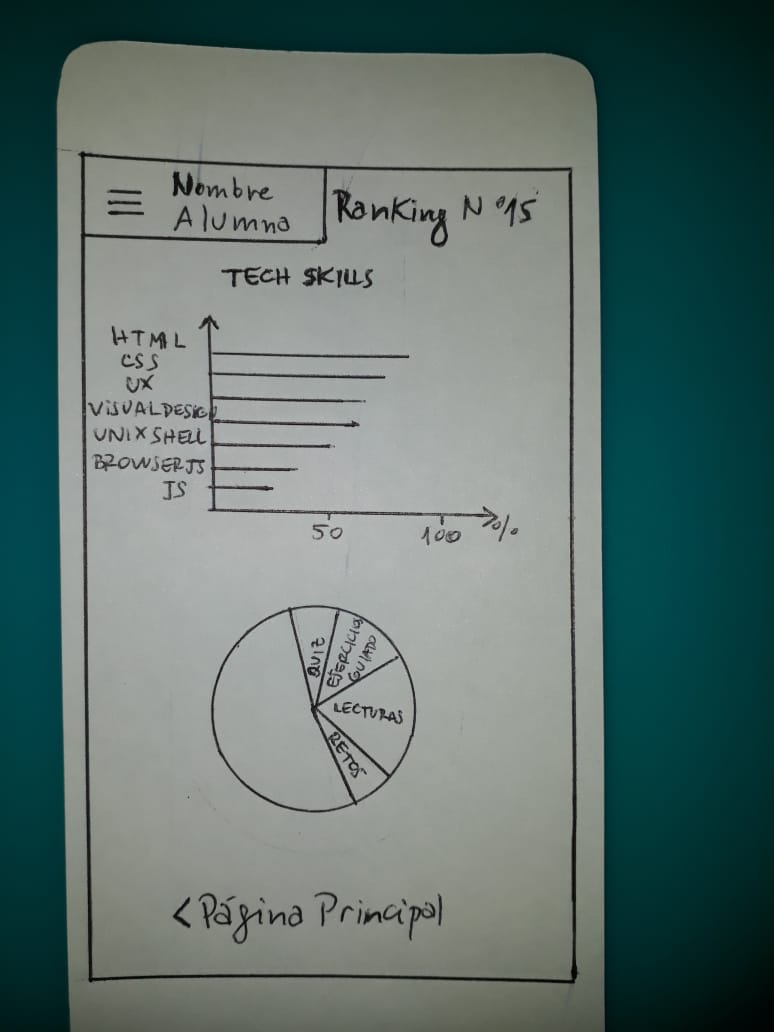 Nombre
Alumna
Ranking N°15
TECH SKILLS
HTML
CSS
UX
VISUALDESIGN
UNIXSHELL
BROWSERJS
JS
50
100
%
QUIZ
EJERCICIOS
GUIADO
LECTURAS
RETOS
<Página Principal